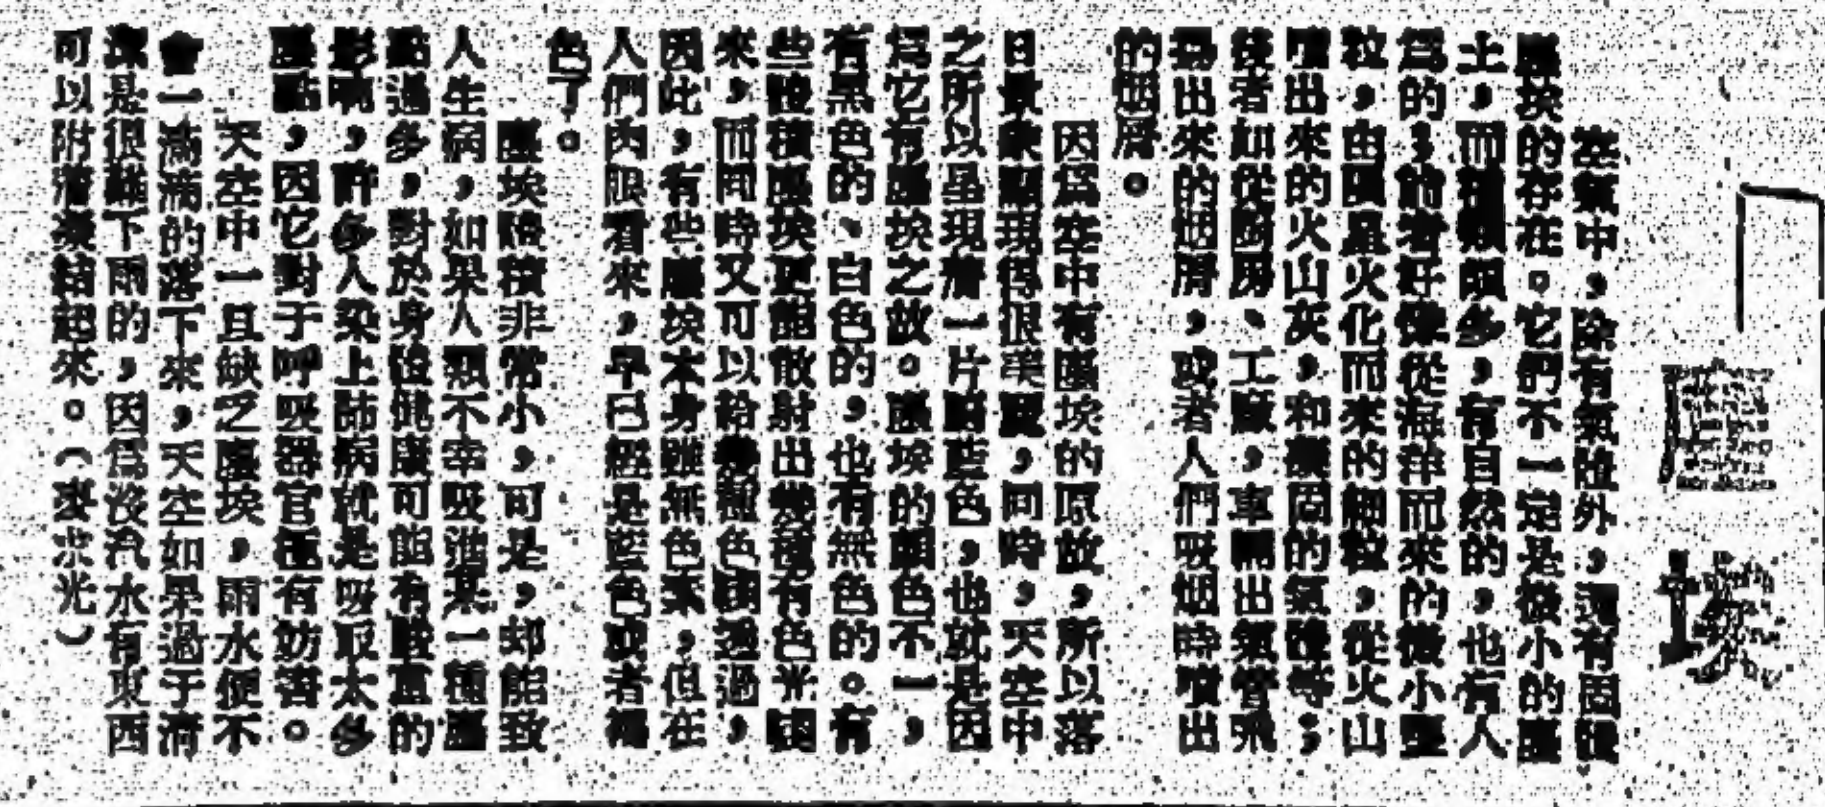 塵埃
空氣中，除有氣體外，還有固體
塵埃的存在。它們不一定是微小的塵
土，而種類頗多，有自然的，也有人
爲的，前者好像從海洋而來的微小鹽
粒，由隕星火化而來的細粒，從火山
噴出來的火山灰，和凝固的氣體等；
後者如從廚房、工廠，車輛出氣管飛
揚出來的烟屑，或者人們吸烟時噴出
的烟屑。
因爲空中有塵埃的原故，所以落
日景象顯現得很美麗，同時，天空中
之所以呈現着一片蔚藍色，也就是因
爲它有塵埃之故。塵埃的顏色不一，
有黑色的、白色的，也有無色的。有
些體積塵埃更能散射出幾種有色光綫
來，而同時又可以給幾種色綫透過，
因此，有些塵埃本身雖無色素，但在
人們肉眼看來，早已經是藍色或者褐
色了。
塵埃體積非常小，可是，却能致
人生病，如果人類不幸吸進某一種塵
點過多，對於身體健康可能有嚴重的
影响，許多人染上肺病就是吸取太多
塵點，因它對于呼吸器官極有妨害。
天空中一旦缺乏塵埃，雨水便不
會一滴滴的落下來，天空如果過于清
潔是很難下雨的，因爲沒汽水有東西
可以附着凝結起來。（求光）